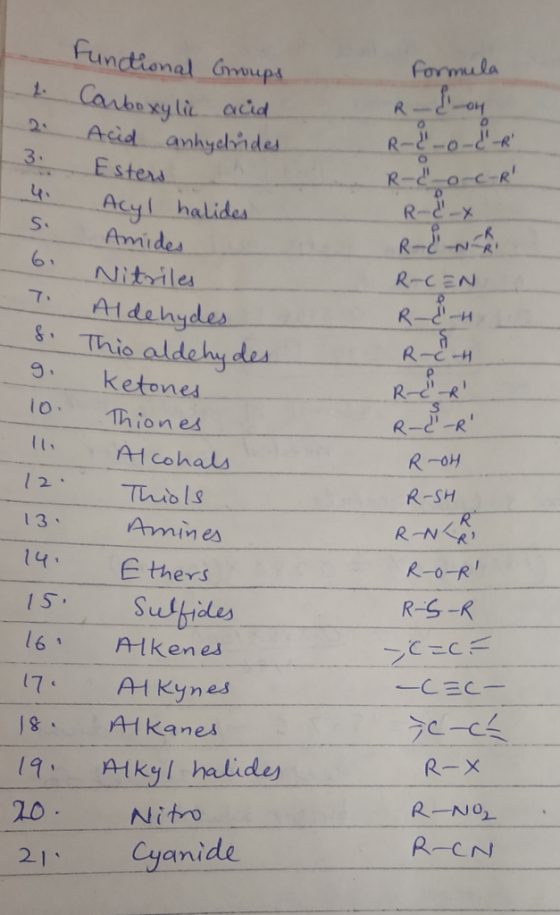 Functional Groups Formula
1. Carboxylic acid R-C(=O)-OH
2. Acid anhydrides R-C(=O)-O-C(=O)-R'
3. Esters R-C(=O)-O-C-R'
4. Acyl halides R-C(=O)-X
5. Amides R-C(=O)-N<R R'
6. Nitriles R-C≡N
7. Aldehydes R-C(=O)-H
8. Thio aldehydes R-C(=S)-H
9. Ketones R-C(=O)-R'
10. Thiones R-C(=S)-R'
11. Alcohals R-OH
12. Thiols R-SH
13. Amines R-N<R R'
14. Ethers R-O-R'
15. Sulfides R-S-R
16. Alkenes >C=C<
17. Alkynes -C≡C-
18. Alkanes ⪫C-C⪪
19. Alkyl halides R-X
20. Nitro R-NO₂
21. Cyanide R-CN